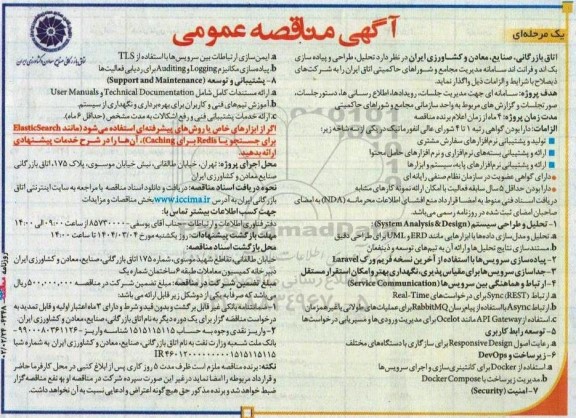 یک مرحله‌ای
آگهی مناقصه عمومی
اتاق بازرگانی، صنایع، معادن و کشاورزی ایران در نظر دارد تحلیل، طراحی و پیاده سازی
بک اند و فرانت اند سامانه مدیریت مجامع و شوراهای حاکمیتی اتاق ایران را به شرکت‌های
ذیصلاح با شرایط و الزامات ذیل واگذار نماید.
هدف پروژه: سامانه ای جهت مدیریت جلسات، رویدادها، اطلاع رسانی ها، دستور جلسات،
صورتجلسات و گزارش های مربوط به واحد سازمانی مجامع و شوراهای حاکمیتی
مدت زمان پروژه: ۴ ماه از زمان اعلام برنده مناقصه
الزامات: دارا بودن گواهی رتبه ۱ تا ۴ شورای عالی انفورماتیک در یکی از سه شاخه زیر:
تولید و پشتیبانی نرم‌افزارهای سفارش مشتری
ارائه و پشتیبانی بسته‌های نرم‌افزاری و نرم‌افزارهای حامل محتوا
ارائه و پشتیبانی نرم‌افزارهای پایه، سیستم و ابزارها
دارای گواهی عضویت در سازمان نظام صنفی رایانه ای
دارا بودن حداقل ۵ سال سابقه فعالیت با امکان ارائه نمونه کارهای مشابه
دریافت اسناد فنی منوط به امضا قرارداد منع افشای اطلاعات محرمانه (NDA) به امضای
صاحبان امضای ثبت شده در روزنامه رسمی می‌باشد.
۱- تحلیل و طراحی سیستم (System Analysis & Design)
a. تحلیل و مدل سازی داده‌ها با ابزارهایی مانند ERD و UML برای طراحی دقیق
b. مستندسازی نتایج تحلیل‌ها و ارائه آن به تیم‌های توسعه و ذینفعان
۲- پیاده‌سازی سرویس‌ها با استفاده از آخرین نسخه فریم ورک Laravel
۳- جداسازی سرویس‌ها برای مقیاس پذیری، نگهداری بهتر و امکان استقرار مستقل
۴- ارتباط و هماهنگی بین سرویس‌ها (Service Communication)
a. ارتباط Sync (REST) برای درخواست‌های Real-Time
b. ارتباط Async با استفاده از پیام‌رسان RabbitMQ برای عملیات‌های طولانی یا غیر همزمان
c. استفاده از API Gateway مانند Ocelot برای مدیریت ورودی‌ها و مسیریابی درخواست‌ها
۵- توسعه رابط کاربری
a. رعایت اصول Responsive Design برای سازگاری با دستگاه‌های مختلف
۶- زیرساخت و DevOps
a. استفاده از Docker برای کانتینری‌سازی و اجرای سرویس‌ها
b. مدیریت زیرساخت با Docker Compose
۷- امنیت (Security)
a. ایمن‌سازی ارتباطات بین سرویس‌ها با استفاده از TLS
b. پیاده‌سازی مکانیزم Logging و Auditing برای ردیابی فعالیت‌ها
۸- پشتیبانی و توسعه (Support and Maintenance)
a. ارائه مستندات کامل شامل Technical Documentation و User Manuals
b. آموزش تیم‌های فنی و کاربران برای بهره‌برداری و نگهداری از سیستم
c. ارائه خدمات پشتیبانی فنی و رفع اشکالات به مدت مشخص (حداقل ۶ ماه).
اگر از ابزارهای خاص یا روش‌های پیشرفته‌ای استفاده می‌شود (مانند ElasticSearch
برای جستجو یا Redis برای Caching)، آن‌ها را در شرح خدمات پیشنهادی
ارائه بدهید.
محل اجرای پروژه: تهران، خیابان طالقانی، نبش خیابان موسوی، پلاک ۱۷۵، اتاق بازرگانی
صنایع معادن و کشاورزی ایران
نحوه دریافت اسناد مناقصه: دریافت و دانلود اسناد مناقصه با مراجعه به سایت اینترنتی اتاق
بازرگانی ایران به آدرس www.iccima.ir بخش مناقصات و مزایدات
جهت کسب اطلاعات بیشتر تماس با:
دفتر فناوری اطلاعات و ارتباطات - جناب آقای یوسفی - ۸۵۷۳۰۰۰۰ از ساعت ۰۹:۰۰ الی ۱۴:۰۰
مهلت بازگشت پیشنهادات: روز یکشنبه مورخ ۱۴۰۴/۰۳/۰۴ تا ساعت ۱۴:۰۰
محل بازگشت اسناد مناقصه:
خیابان طالقانی، تقاطع شهید موسوی، شماره ۱۷۵ اتاق بازرگانی، صنایع، معادن و کشاورزی ایران
دبیرخانه کمیسیون معاملات طبقه ۶ ساختمان شماره یک
مبلغ تضمین شرکت در مناقصه: مبلغ تضمین شرکت در مناقصه ۵,۰۰۰,۰۰۰,۰۰۰ ریال
می باشد که صرفاً به یکی از دوشکل زیر قابل ارائه می باشد:
۱- ضمانتنامه بانکی غیر قابل برگشت و بدون قید و شرط و دارای ۳ ماه اعتبار اولیه و قابل تمدید به
درخواست مناقصه گزار برای یک دوره دیگر به نام اتاق بازرگانی، صنایع، معادن و کشاورزی ایران.
۲- واریز نقدی وجوه به حساب ۱۵۱۵۱۱۵۱۱۵ شناسه واریز
بانک ملت شعبه وزارت نفت به نام اتاق بازرگانی، صنایع، معادن و کشاورزی ایران به شماره شبا
نکته: برنده مناقصه ملزم است ظرف مدت ۵ روز کاری پس از ابلاغ کتبی در محل کارفرما حاضر
و قرارداد مربوطه را امضا نماید در غیر این صورت سپرده شرکت در مناقصه او به نفع مناقصه گزار
ضبط خواهد شد و برنده مذکور حق هیچ گونه اعتراض و ادعایی نسبت به آن نخواهد داشت.